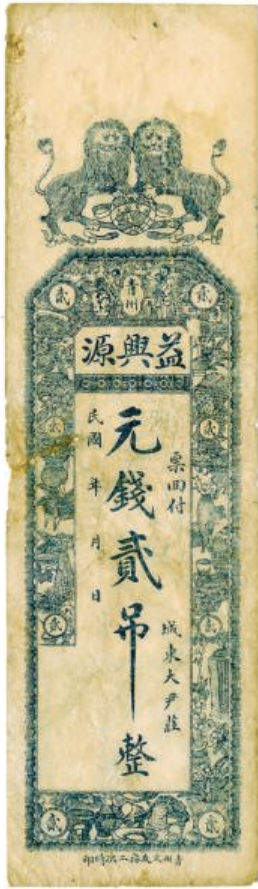 青州
貳 貳
益興源
票回付
城東大尹莊
元錢貳吊整
民國 年 月 日
貳 貳
貳 貳
貳 貳